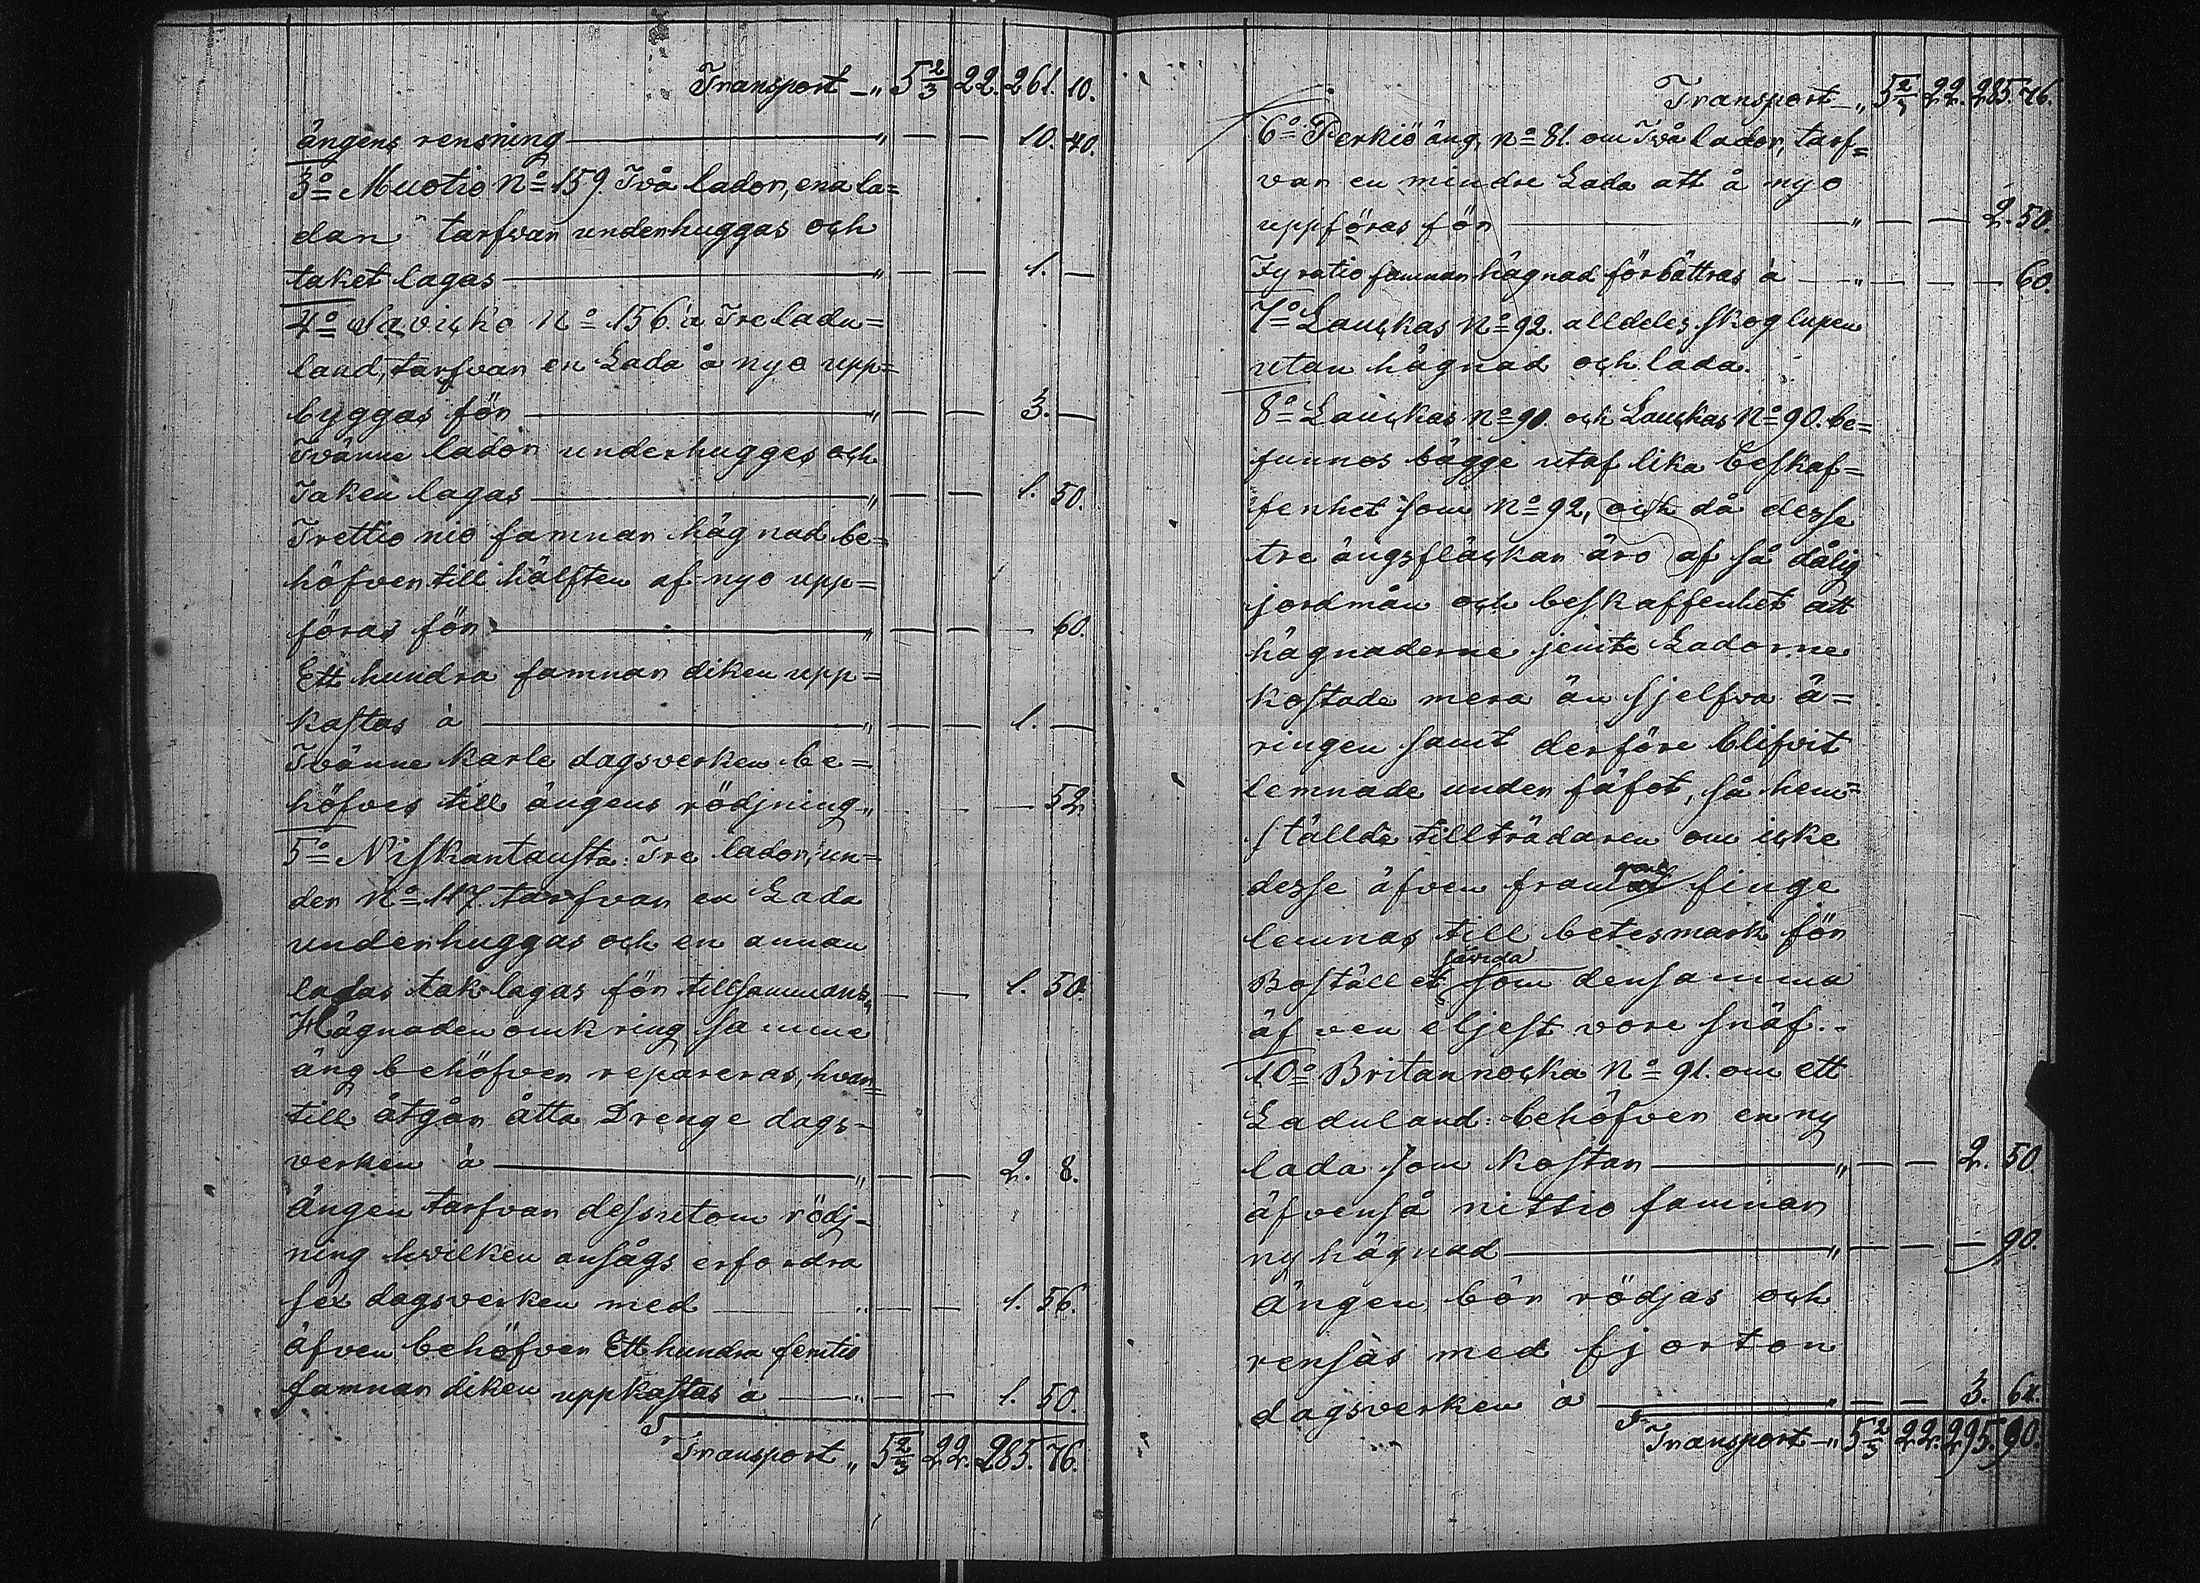 Transport -„ 5 2/3 22. 261. 10.
ängens rensning „ — — 10. 40.
3o Muotio No 159. Två lador, ena la=
dan tarfvar underhuggas och
taket lagas „ — — 1. —
4o Savicko No 156. à Tre ladu=
land, tarfvar en Lada å nyo upp=
byggas för „ — — 3. —
Tvänne lador underhugges och
Taken lagas „ — — 1. 50.
Trettio nio famnar hägnad be=
höfver till hälften af nyo upp=
föras för „ — — — 60.
Ett hundra famnar diken upp=
kastas à „ — — 1. —
Tvänne karle dagsverken be=
höfves till ängens rödjning „ — — 52.
5o Niskantausta: Tre lador, un=
der No 117. tarfvar en Lada
underhuggas och en annan
ladas tak lagas för tillsammans „ — — 1. 50.
Hägnaden omkring samma
äng behöfver repareras, hvar=
till åtgår åtta Drenge dags-
verken à „ — — 2. 8.
Ängen tarfvar dessutom rödj-
ning hvilken ansågs erfordra
sex dagsverken med „ — — 1. 56.
äfven behöfver Ett hundra femtio
famnar diken uppkastas à „ — — 1. 50.
Transport „ 5 2/3 22. 285. 76.
Transport -„ 5 2/3 22. 285. 76.
6o Perkiö äng, No 81. om Två lador, tarf=
var en mindre Lada att å nyo
uppföras för „ — — 2. 50.
Fyratio famnar hägnad förbättras à „ — — — 60.
7o Lauckas No 92. alldeles skoglupen
utan hägnad och lada.
8o Lauckas No 91. och Lauckas No 90. be=
funnos bägge utaf lika beskaf=
fenhet som No 92, och då desse
tre ängsfläckar äro af så dålig
jordmån och beskaffenhet att
hägnaderne jemte Ladorne
kostade mera än sjelfva ä=
ringen samt derföre blifvit
lemnade under fäfot, så hem=
ställde tillträdaren om icke
desse äfven fram finge
lemnas till betesmark för
såvida
Bostället, som densamma
äfven eljest vore snäf.
10o Britannocka No 91. om ett
Laduland: behöfver en ny
lada som kostar „ — — 2. 50
äfvenså nittio famnar
ny hägnad „ — — — 90.
Ängen bör rödjas och
rensas med fjorton
dagsverken à „ — — 3. 64.
Transport -„ 5 2/3 22. 295. 90.